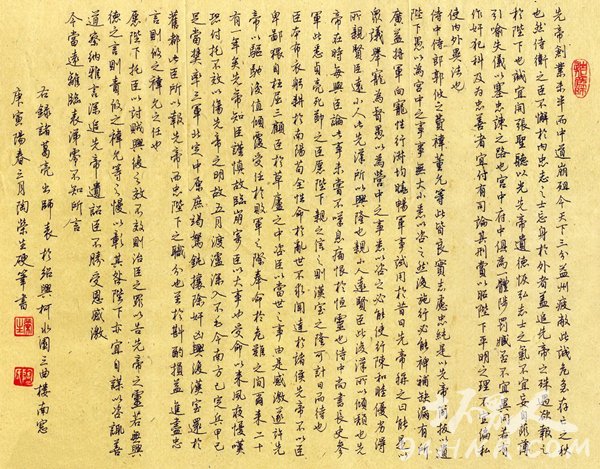 先帝創業未半而中道崩殂今天下三分益州疲敝此誠危急存亡之秋
也然侍衛之臣不懈於內忠志之士忘身於外者蓋追先帝之殊遇欲報之
於陛下也誠宜開張聖聽以光先帝遺德恢弘志士之氣不宜妄自菲薄
引喻失儀以塞忠諫之路也宮中府中俱為一體陟罰臧否不宜異同若有
作奸犯科及為忠善者宜付有司論其刑賞以昭陛下平明之理不宜偏私
使內外異法也
侍中侍郎郭攸之費禕董允等此皆良實志慮忠純是以先帝簡拔以遺
陛下愚以為宮中之事事無大小悉以咨之然後施行必能裨補缺漏有所
廣益將軍向寵性行淑均曉暢軍事試用於昔日先帝稱之曰能是以
眾議舉寵為督愚以為營中之事悉以咨之必能使行陣和睦優劣得
所親賢臣遠小人此先漢所以興隆也親小人遠賢臣此後漢所以傾頹也先
帝在時每與臣論此事未嘗不嘆息痛恨於桓靈也侍中尚書長史參
軍此悉貞亮死節之臣願陛下親之信之則漢室之隆可計日而待也
臣本布衣躬耕於南陽苟全性命於亂世不求聞達於諸侯先帝不以臣
卑鄙猥自枉屈三顧臣於草廬之中咨臣以當世之事由是感激遂許先
帝以驅馳後值傾覆受任於敗軍之際奉命於危難之間爾來二十
有一年矣先帝知臣謹慎故臨崩寄臣以大事也受命以來夙夜憂嘆
恐付托不效以傷先帝之明故五月渡瀘深入不毛今南方已定兵甲已
足當獎率三軍北定中原庶竭駑鈍攘除奸凶興復漢室還於
舊都此臣所以報先帝而忠陛下之職分也至於斟酌損益進盡忠
言則攸之禕允之任也
願陛下托臣以討賊興復之效不效則治臣之罪以告先帝之靈若無興
德之言則責攸之禕允等之慢以彰其咎陛下亦宜自謀以咨諏善
道察納雅言深追先帝遺詔臣不勝受恩感激
今當遠離臨表涕零不知所言
右錄諸葛亮出師表於紹興柯水園三曲樓南窗
庚寅陽春三月陶榮生硬筆書